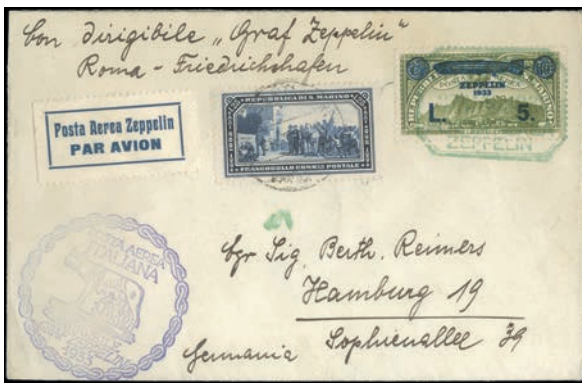 con dirigibile „Graf Zeppelin"
Roma - Friedrichshafen
Posta Aerea Zeppelin
PAR AVION
REPUBBLICA DI S. MARINO
FRANCOBOLLO
POSTALE
POSTA AEREA
ZEPPELIN
1933
L. 5.
ZEPPELIN
POSTA AEREA
ITALIANA
1933
Sig. Berth. Reimers
Hamburg 19
Sophienallee 39
Germania